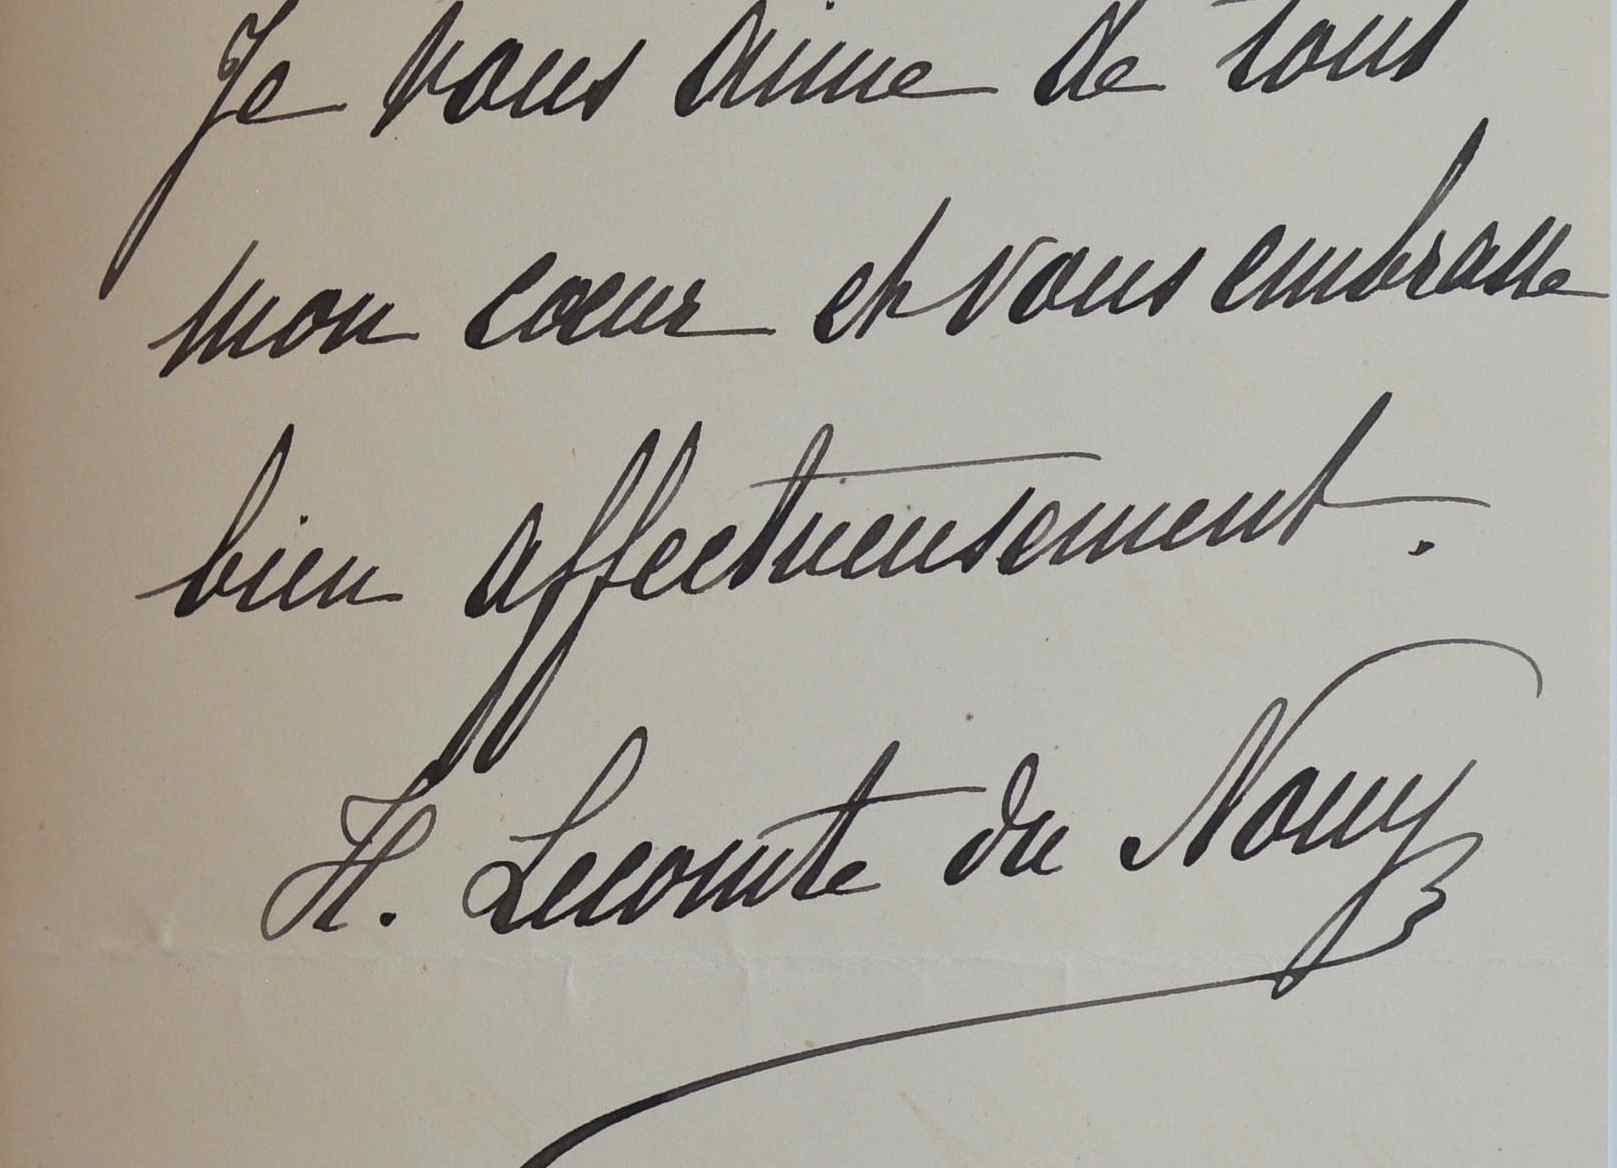 Je vous aime de tout
mon cœur et vous embrasse
bien affectueusement.
H. Lecomte du Nouy